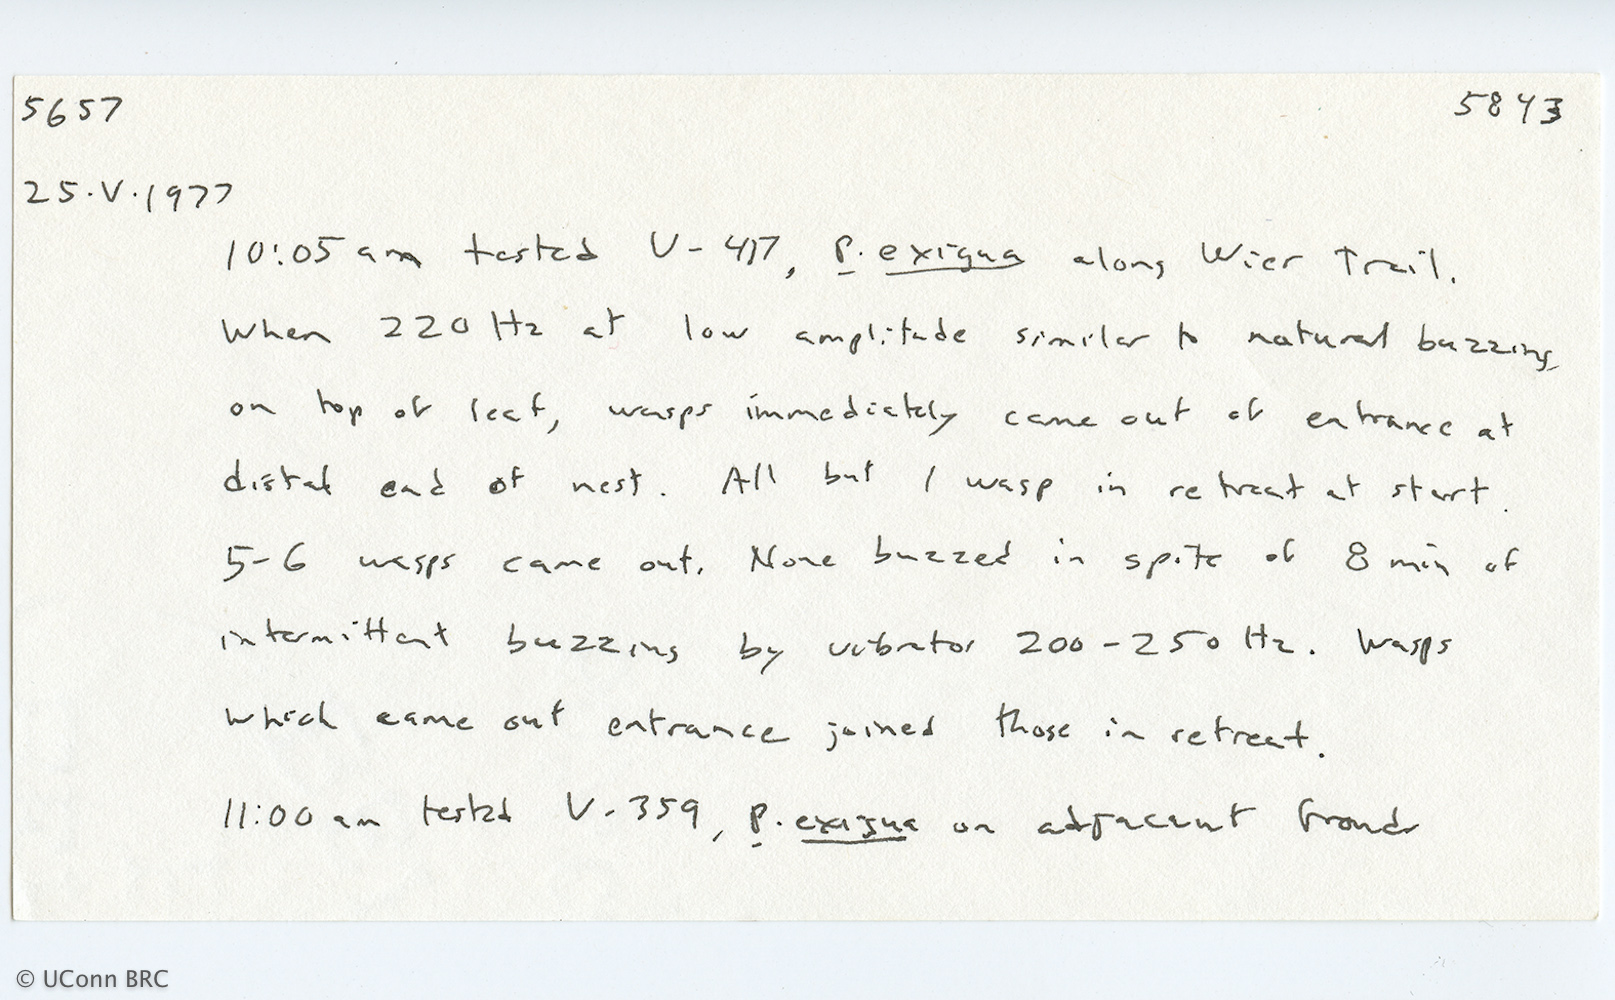 5657 5843
25.V.1977
10:05 am tested V-417, P. exigua along Wier Trail.
When 220 Hz at low amplitude similar to natural buzzing
on top of leaf, wasps immediately came out of entrance at
distal end of nest. All but 1 wasp in retreat at start.
5-6 wasps came out. None buzzed in spite of 8 min of
intermittent buzzing by vibrator 200-250 Hz. Wasps
which came out entrance joined those in retreat.
11:00 am tested V-359, P. exigua on adjacent frond
© UConn BRC